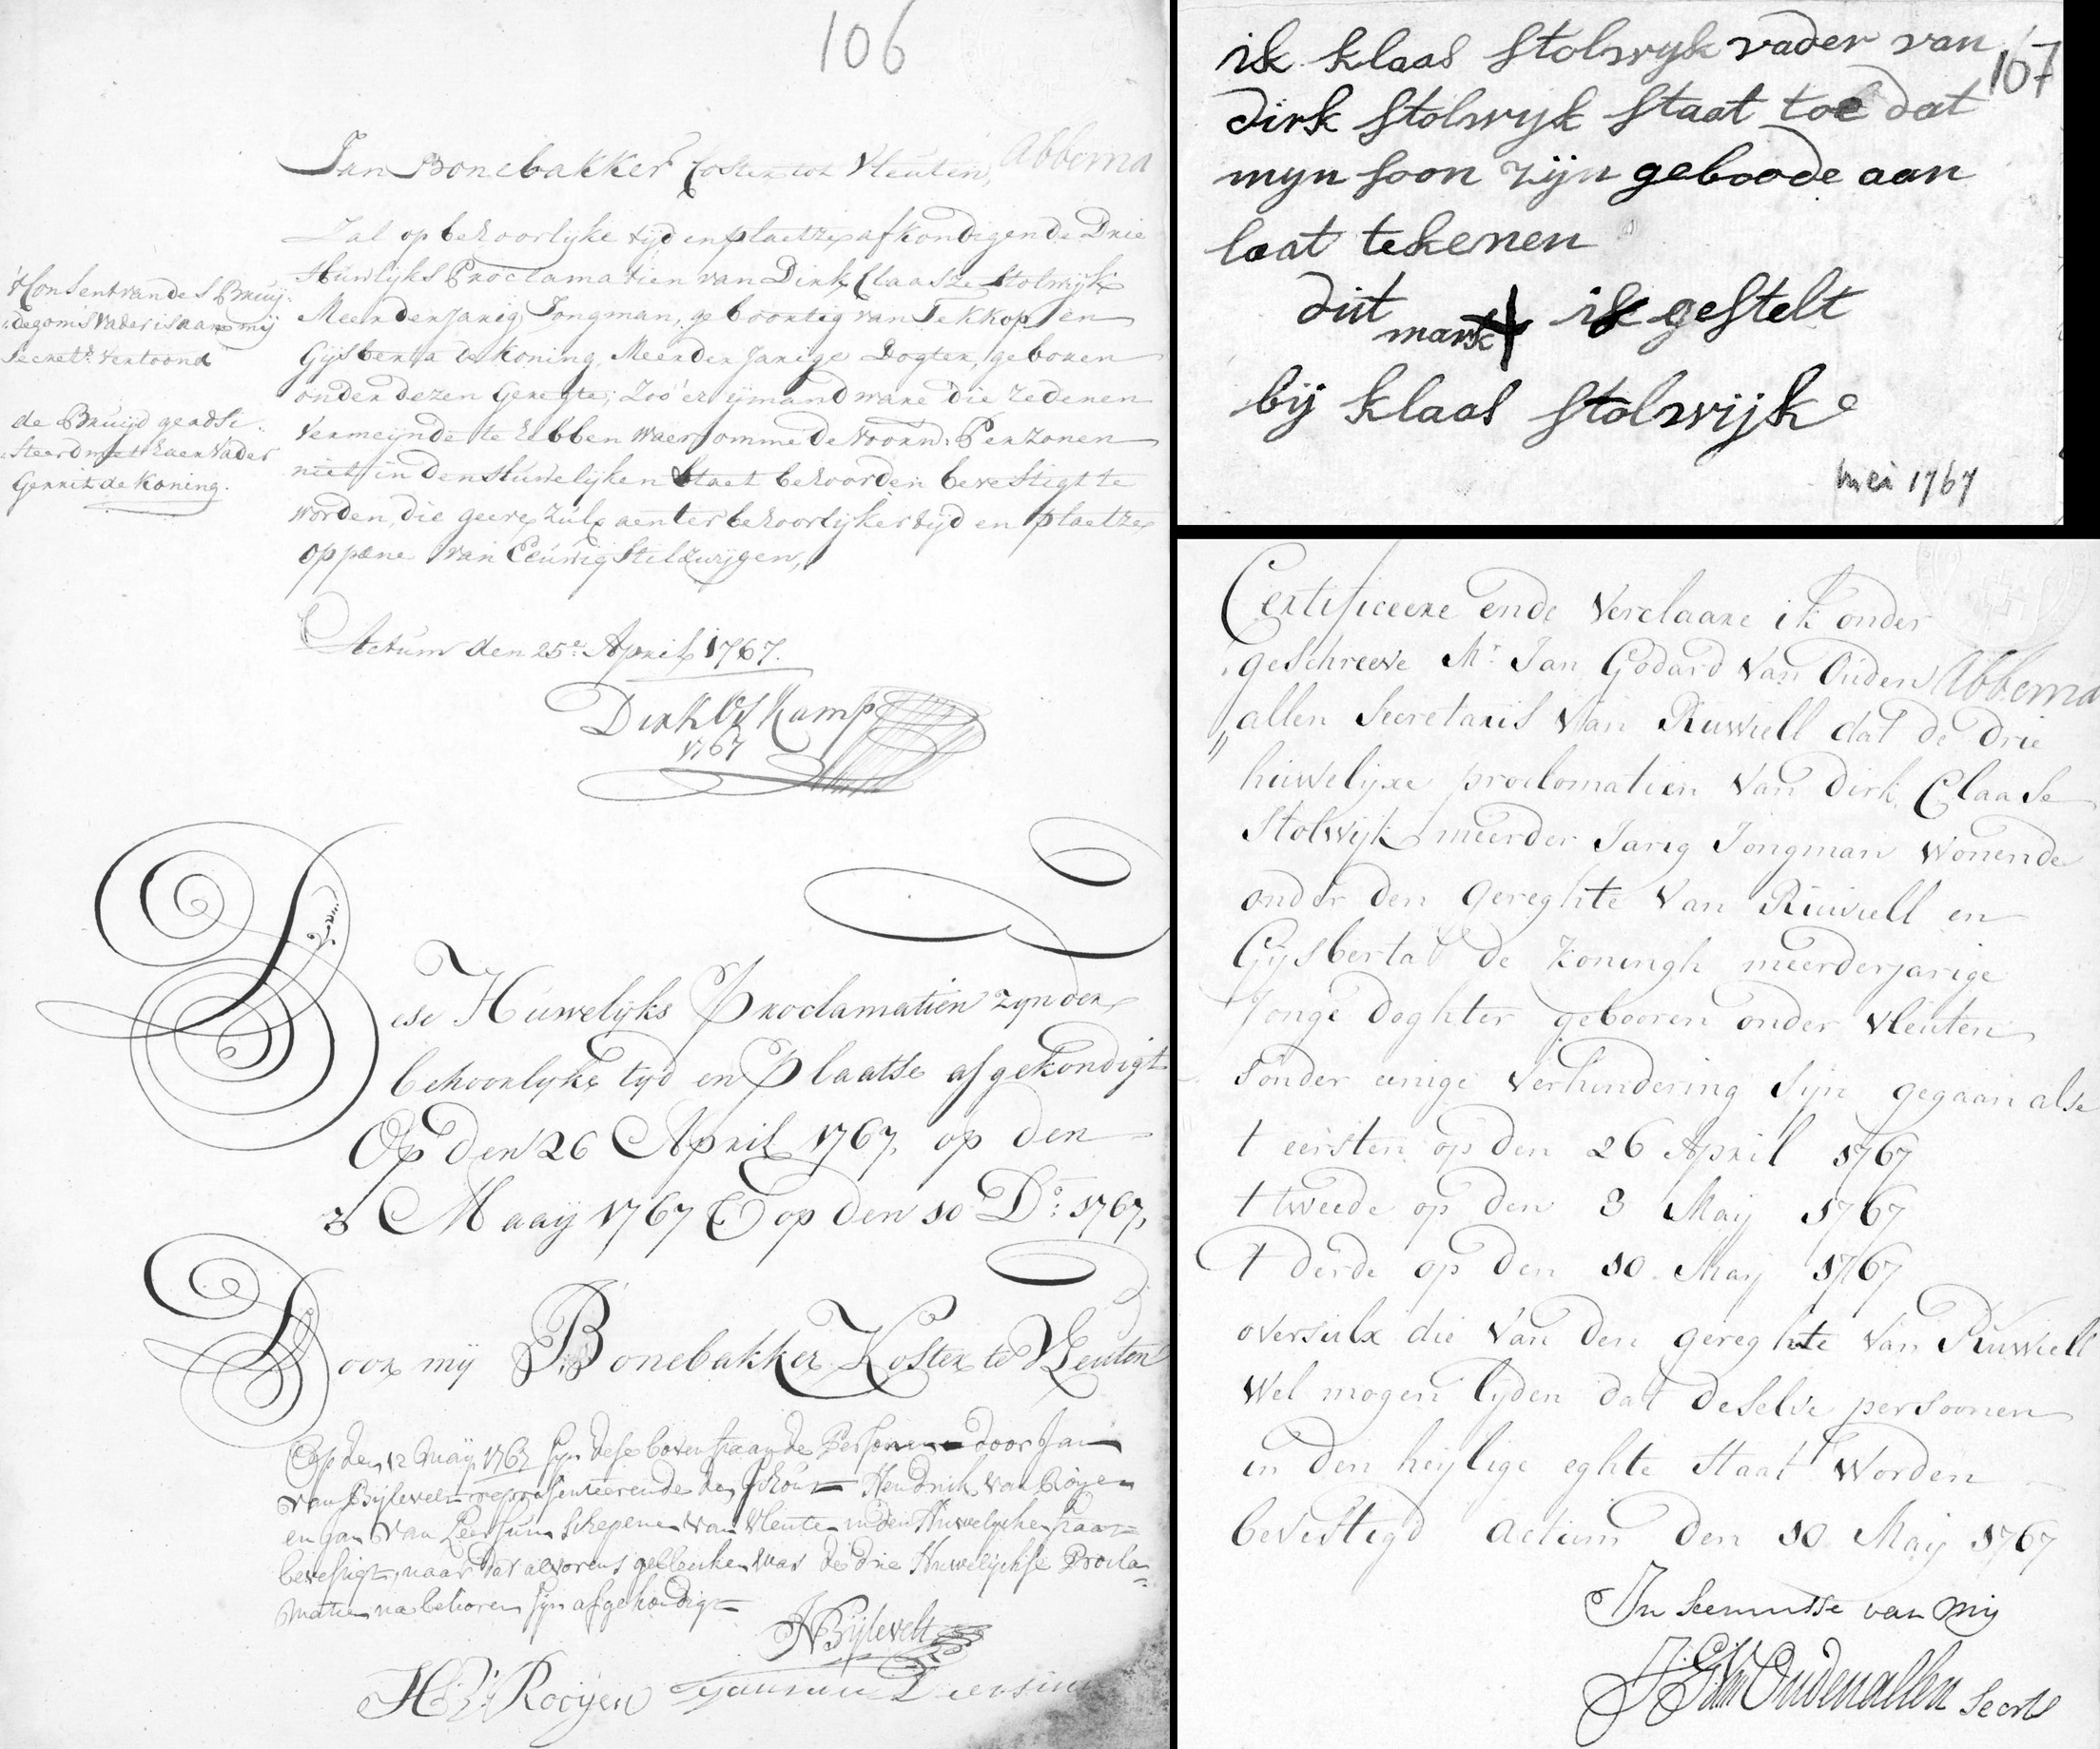 106
Jan Bonebakker Coster tot Vleuten,
Abbema
Zal op behoorlyke tyd en plaetze afkondigen de Drie
Huwlyks Proclamatien van Dirk Claasze Stolwyk
Meerderjarig Jongman, geboortig van Tekkop en
Gijsberta de Koning Meerderjarige Dogter, geboren
onder dezen Geregte; Zoo'er ymand ware die redenen
Vermeijnde te hebben waeromme de voorn: Perzonen
niet in den Huwelyken Staet behoorden bevestigt te
worden, die geeve zulx aen ter behoorlyker tyd en plaetze
op pæne van Eeuwig Stilzwygen,
't Consent van des Bruy:
:degoms Vader is aan mij
Secret:s vertoond
de Bruijd geadsi:
:steerd met haer Vader
Gerrit de Koning.
Actum den 25e April 1767.
Dirk Veskamp
1767
Dese Huwelyks Proclamatien zyn der
behoorlyke tyd en Plaatse afgekondigt
Op den 26 April 1767, op den
3 Maay 1767 & op den 10 Do: 1767,
Door mij Bonebakker Koster te Vleuten
Op den 12 Maij 1767 syn dese bovenstaande Personen door Jan
van Bijlevelt representeerende den Schout Hendrik van Roijen
en Jan van Leersum Schepenen van Vleuten in den Huwelijken staat
bevestigt, naar dat alvorens gebleken was de drie Huwelijckse Procla-
matien na behoren syn afgekondigt
JVBijlevelt
H:V: Rooijen
Jan van Leersum
ik klaas stolwyk vader van
107
dirk stolwyk staat toe dat
myn soon zijn geboode aan
laat tekenen
dit mark is gestelt
bij klaas stolwijk
mei 1767
Certificeere ende Verclaare ik onder
:geschreeve Mr Jan Godard Van Ouden
Abbema
"allen Secretaris Van Ruwiell dat de drie
huwelijxe proclomatien Van dirk Claase
Stolwijk meerder Jarig Jongman Wonende
onder den Gereghte Van Ruwiell en
Gijsberta de Koningh meerderjarige
Jonge doghter gebooren onder Vleuten
sonder eenige Verhindering Sijn gegaan alse
t eersten op den 26 April 1767
t tweede op den 3 Maij 1767
t derde op den 10 Maij 1767
oversulx die Van den gereghte Van Ruwiell
Wel mogen lijden dat deselve persoonen
in den heijlige eghte Staat Worden
bevestigd Actum den 10 Maij 1767
In kennisse van Mij
JGVan Oudenallen Secrts